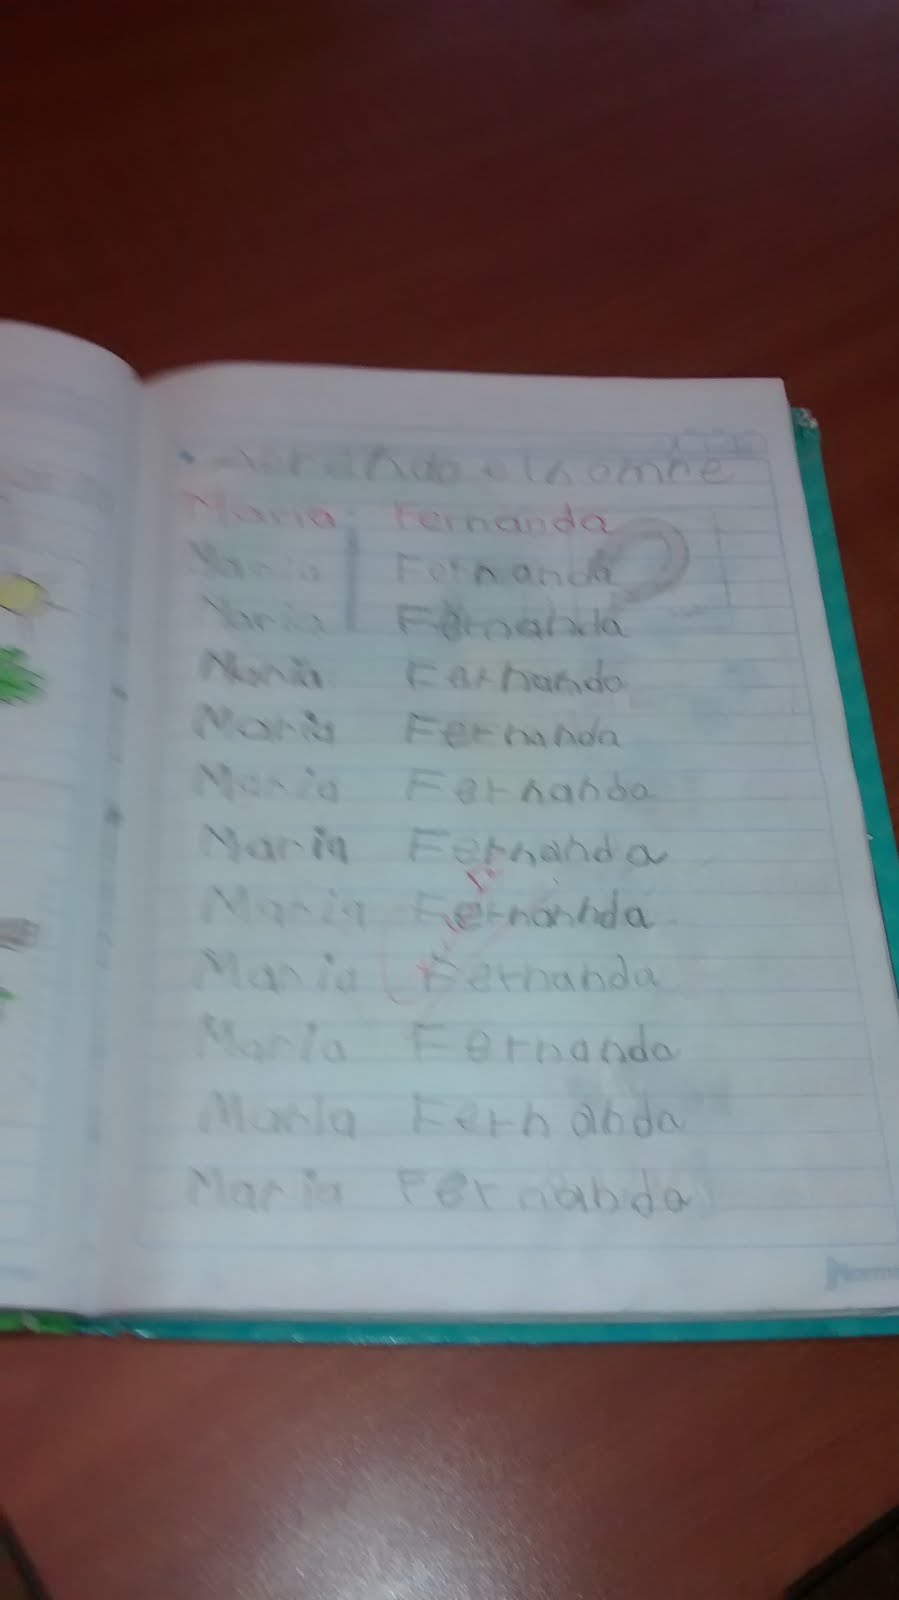 Aprendo el nomne
Maria Fernanda
Maria Fernanda
Maria Fernanda
Maria Fernando
Maria Fernanda
Maria Fernanda
Maria Fernanda
Maria Fernanda
Maria Fernanda
Maria Fernanda
Maria Fernanda
Maria Fernanda
Norma